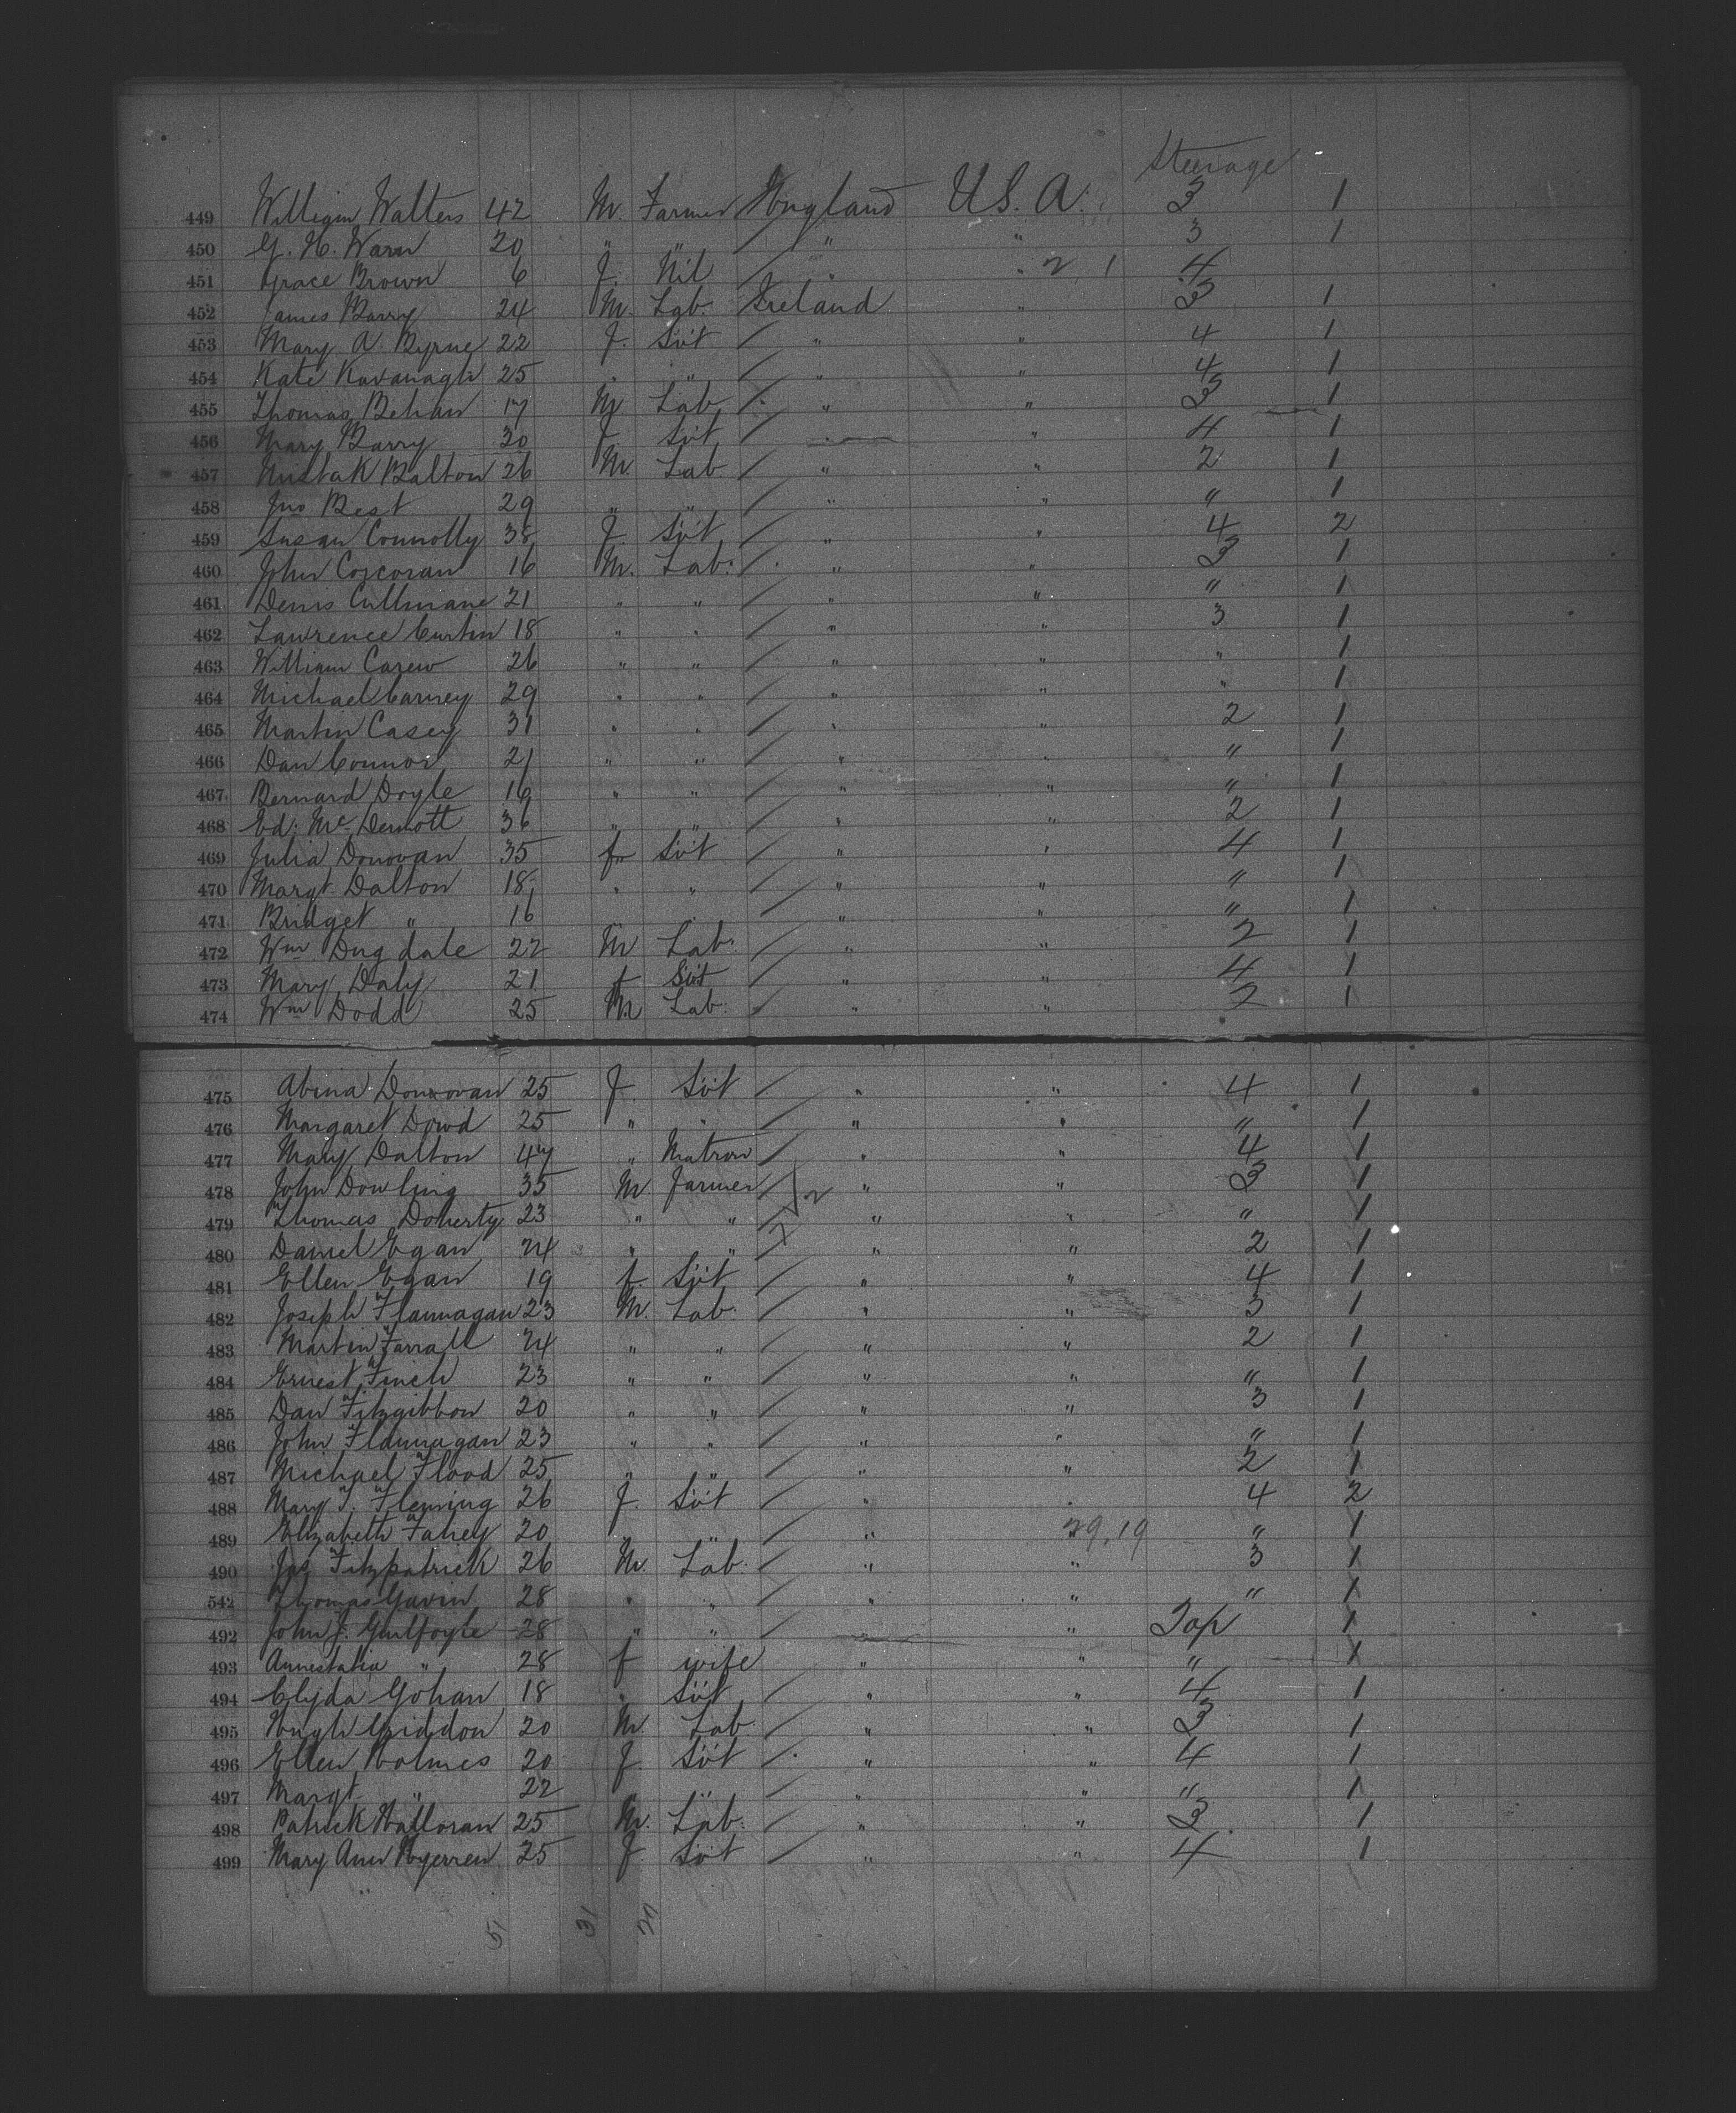 Steerage
449 William Walters 42 M. Farmer England U.S.A. 3 1
450 G. H. Warn 20 " " / " " 3 1
451 Grace Brown 6 f. Nil / " " 2 1 4
452 James Barry 24 M. Lab. Ireland " 3 1
453 Mary A Byrne 22 f. Spt / " " 4 1
454 Kate Kavanagh 25 " " / " " 4 1
455 Thomas Behan 17 M Lab / " " 3 1
456 Mary Barry 30 f. Spt / " " 4 1
457 Balton 26 M Lab / " " 2 1
458 Jno Best 29 " " / " " " 1
459 Susan Connolly 38 f Spt / " " 4 2
460 John Corcoran 16 M. Lab: / " " 3 1
461 Denis Cullinane 21 " " / " " " 1
462 Lawrence Curtin 18 " " / " " 3 1
463 William Carew 26 " " / " " " 1
464 Michael Carney 29 " " / " " " 1
465 Martin Casey 31 " " / " " 2 1
466 Dan Connor 21 " " / " " " 1
467 Bernard Doyle 19 " " / " " " 1
468 Ed: McDermott 36 " " / " " 2 1
469 Julia Donovan 35 f Spt / " " 4 1
470 Margt Dalton 18 " " / " " " 1
471 Bridget " 16 " " / " " " 1
472 Wm Dugdale 22 M Lab: / " " 2 1
473 Mary Daly 21 f Spt / " " 4 1
474 Wm Dodd 25 M Lab: / " " 2 1
475 Abina Donovan 25 f Spt / " " 4 1
476 Margaret Dowd 25 " " / " " " 1
477 Mary Dalton 47 " Matron / " " 4 1
478 John Dowling 35 M Farmer / 2 " " 3 1
479 Thomas Doherty 23 " " / " " " 1
480 Daniel Egan 24 " " / " " 2 1
481 Ellen Egan 19 f. Spt / " " 4 1
482 Joseph Flannagan 23 M. Lab: / " " 3 1
483 Martin Farrall 24 " " / " " 2 1
484 Ernest Finch 23 " " / " " " 1
485 Dan Fitzgibbon 20 " " / " " 3 1
486 John Flannagan 23 " " / " " " 1
487 Michael Flood 25 " " / " " 2 1
488 Mary T. Fleming 26 f. Spt / " " 4 2
489 Elizabeth Fahey 20 " " / " " 29.19 " 1
490 Jas Fitzpatrick 26 M. Lab: / " " 3 1
542 Thomas Gavin 28 " " / " " " 1
492 John J. Guilfoyle 28 " " / " " Top 1
493 Annestatia " 28 f wife " " " 1
494 Clyda Gohan 18 " Spt / " " 4 1
495 Hugh Griddon 20 M. Lab / " " 3 1
496 Ellen Holmes 20 f Spt / " " 4 1
497 Margt " 22 " " / " " " 1
498 Patrick Halloran 25 M. Lab: / " " 3 1
499 Mary Ann 25 f Spt / " " 4 1
51 31 20